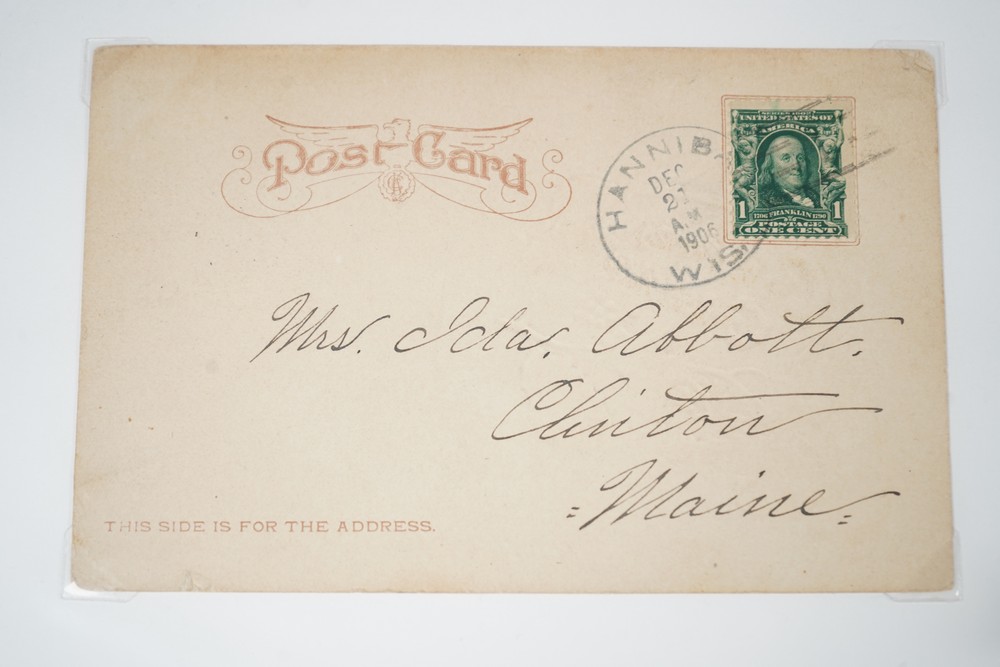 Post Card
SERIES 1902
UNITED STATES OF
AMERICA
1 1706 FRANKLIN 1790 1
POSTAGE
ONE CENT
HANNIB
DEC
A.M
1906
WIS.
Mrs. Ida. Abbott.
Clinton
Maine
THIS SIDE IS FOR THE ADDRESS.